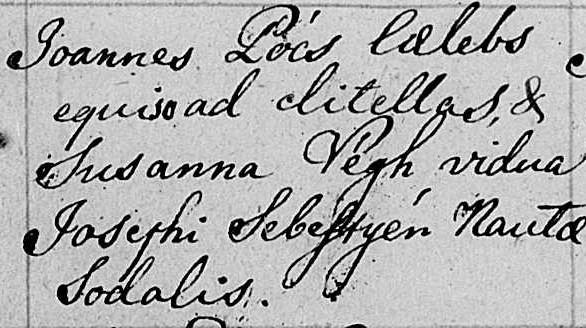 Joannes Pócs cælebs
equiso ad clitellas, &
Susanna Végh vidua
Josephi Sebestyén Nautæ
Sodalis.